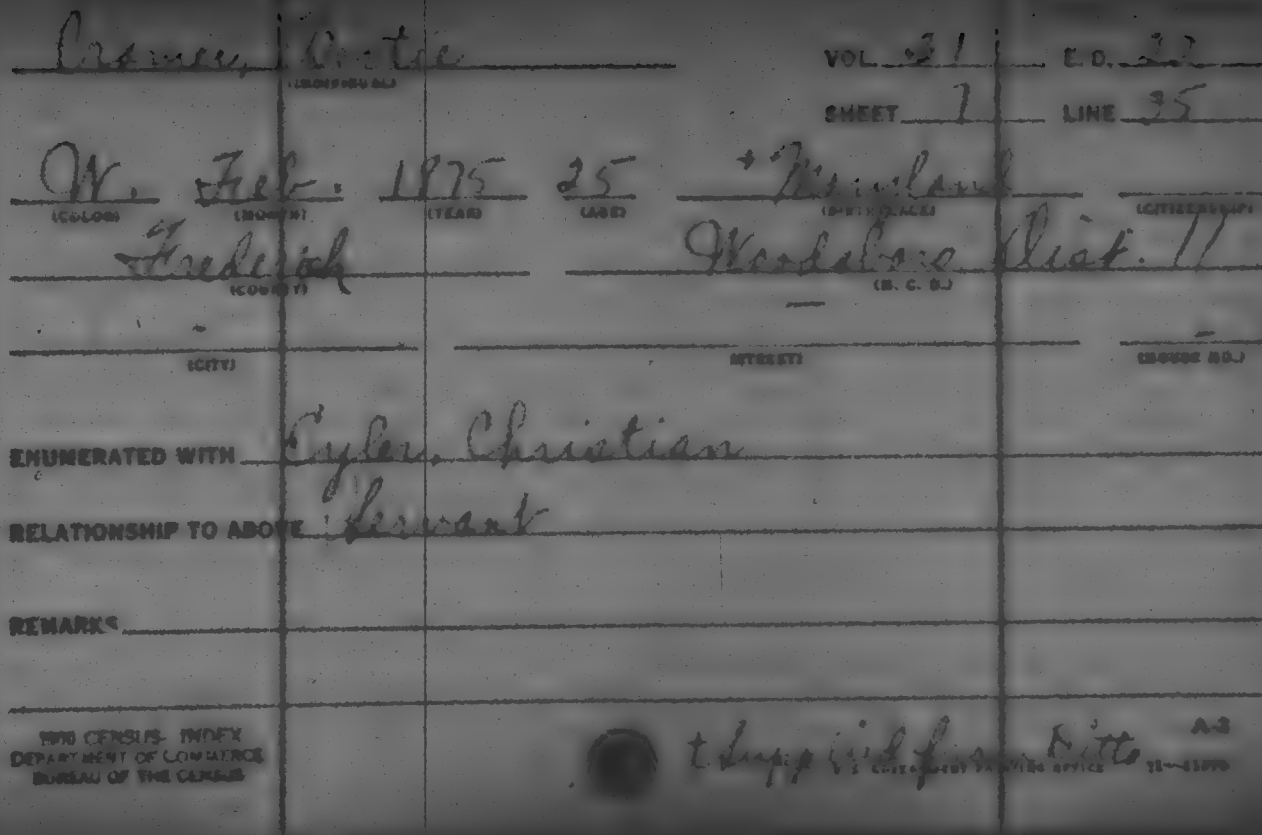 VOL. 21 E.D. 22
(INDIVIDUAL)
SHEET 7 LINE 35
W. Feb. 1875 25 Maryland
(COLOR) (MONTH) (YEAR) (AGE) (BIRTHPLACE) (CITIZENSHIP)
Frederick Woodsboro Dist. 11
(COUNTY) (M. C. D.)
— –
(CITY) (STREET) (HOUSE NO.)
ENUMERATED WITH Eyler, Christian
RELATIONSHIP TO ABOVE Servant
REMARKS
1900 CENSUS—INDEX
DEPARTMENT OF COMMERCE
BUREAU OF THE CENSUS
Supplied from Ditto A-3
U. S. GOVERNMENT PRINTING OFFICE